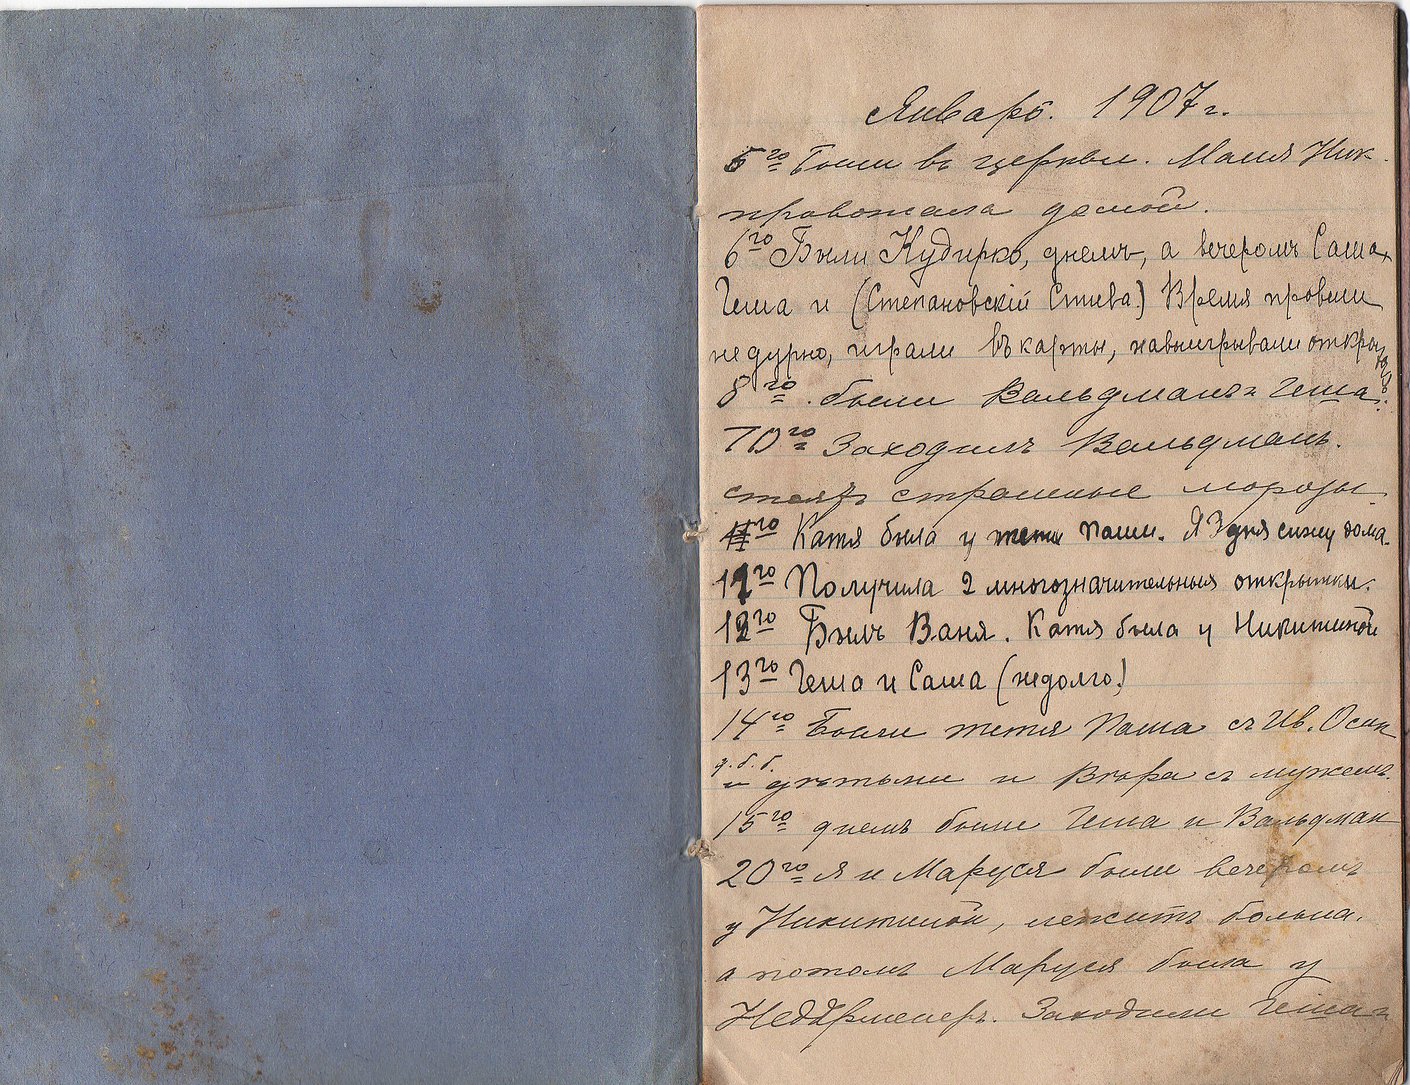 Январь. 1907 г.
5го Были въ церкви. Маня Ник.
провожала домой.
6го Были Кудирко, днемъ, а вечеромъ Саша,
Геша и (Степановскій Стива) Время провели
недурно, играли въ карты, навыигрывали открытокъ.
8го. были Вальдманъ и Геша.
10го Заходилъ Вальдманъ.
стоятъ страшные морозы.
11го Катя была у тети Паши. Я 3 дня сижу дома.
11го Получила 2 многозначительныя открытки.
12го Былъ Ваня. Катя была у Никитиной
13го Геша и Саша (недолго.)
14го Были тетя Паша съ Ив. Осип
д. б. б.
и дѣтьми и съ мужемъ.
15го днемъ были Геша и Вальдман
20го Я и Маруся были вечеромъ
у Никитиной, лежитъ больна.
а потомъ Маруся была у
Заходили Геша и